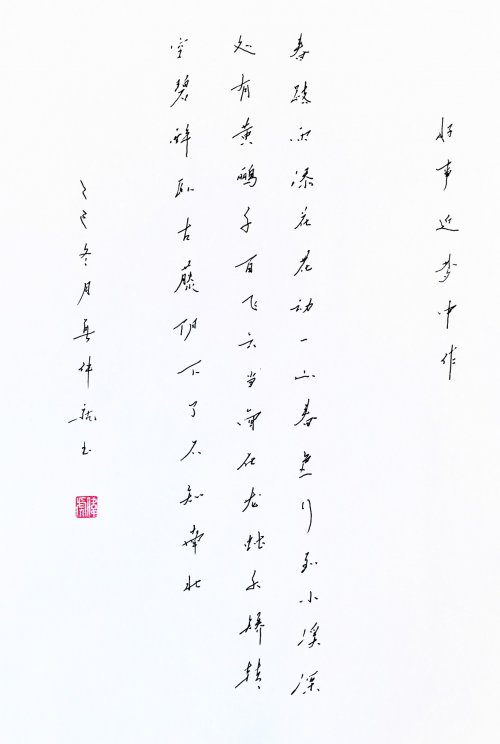 好事近梦中作
春路雨添花花动一山春色行到小溪深
处有黄鹂千百飞云当面化龙蛇夭矫转
空碧醉卧古藤阴下了不知南北
乙巳冬月吴伟书